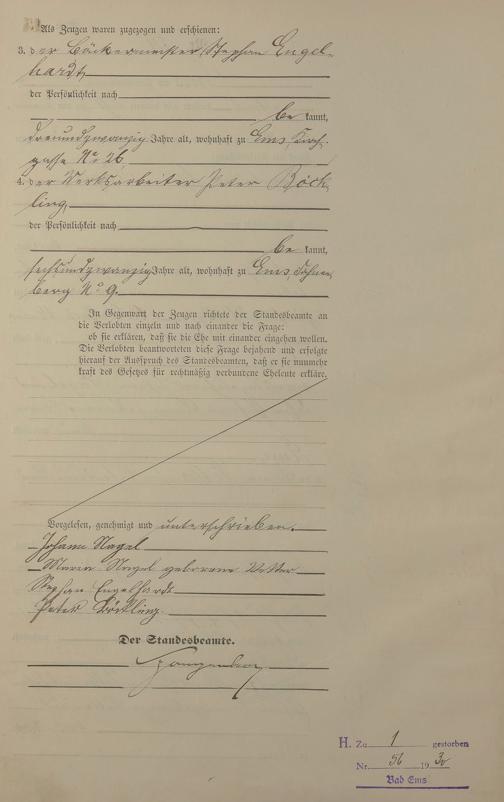 Als Zeugen waren zugezogen und erschienen:
3. der Bäckermeister Stephan Engel-
hardt,
der Persönlichkeit nach
be kannt,
dreiundzwanzig Jahre alt, wohnhaft zu Ems, Kirch-
gasse No 26
4. der Werksarbeiter Peter Böck-
ling,
der Persönlichkeit nach
be kannt,
sechsundzwanzig Jahre alt, wohnhaft zu Ems,
berg No 9.
In Gegenwart der Zeugen richtete der Standesbeamte an
die Verlobten einzeln und nach einander die Frage:
ob sie erklären, daß sie die Ehe mit einander eingehen wollen.
Die Verlobten beantworteten diese Frage bejahend und erfolgte
hierauf der Ausspruch des Standesbeamten, daß er sie nunmehr
kraft des Gesetzes für rechtmäßig verbundene Eheleute erkläre.
Vorgelesen, genehmigt und unterschrieben.
Johann Nagel
Maria Nagel geborene Vetter
Stephan Engelhardt
Peter Böckling
Der Standesbeamte.
H. Zu 1 gestorben
Nr. 56 1930
Bad Ems